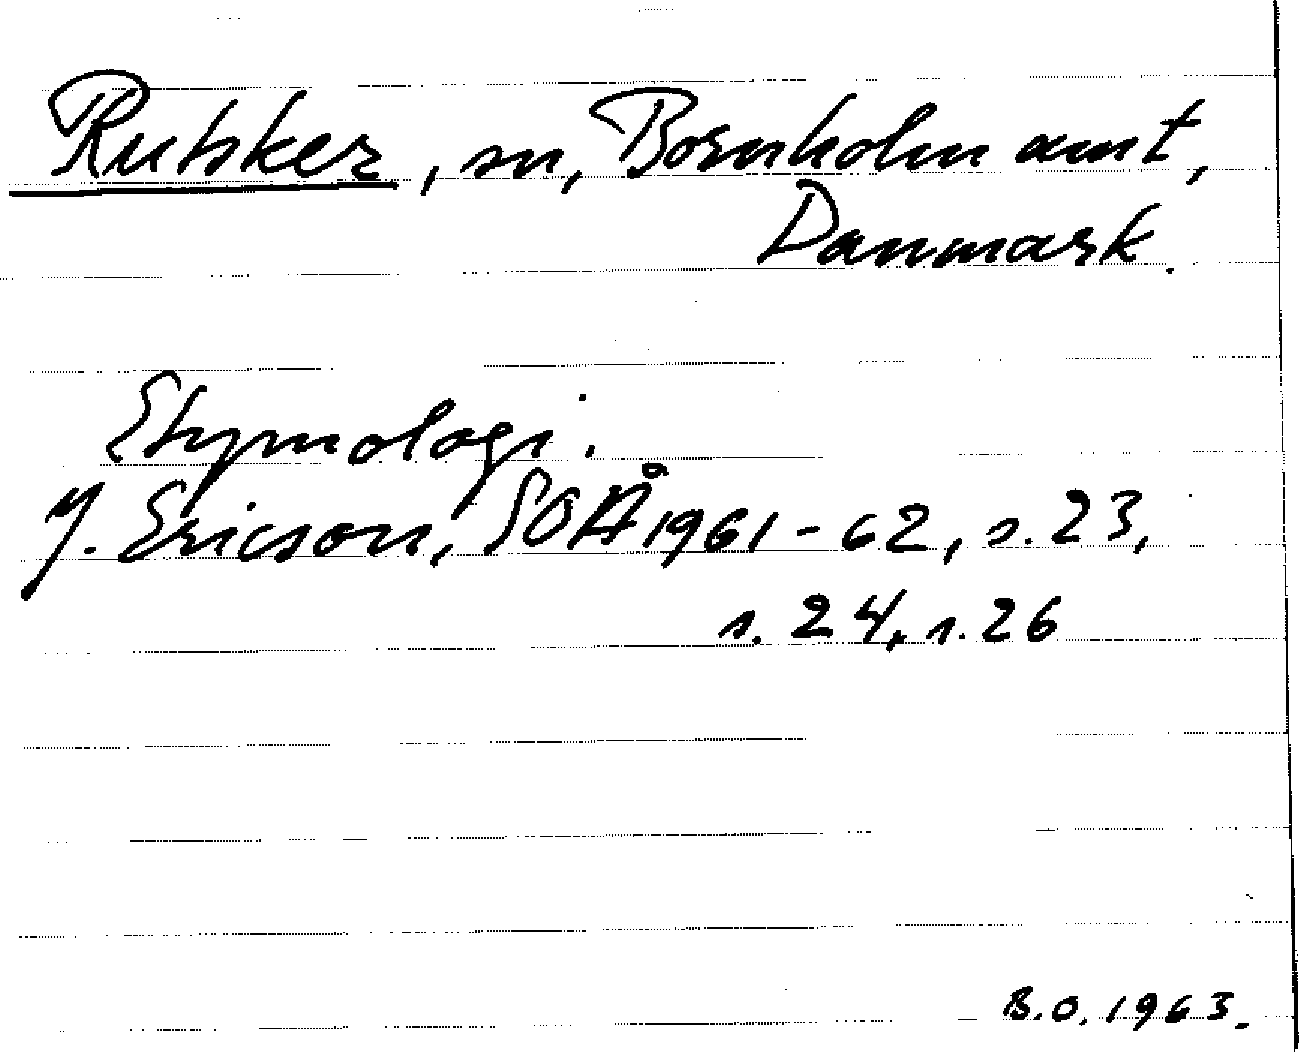 Rutsker, sn, Bornholm amt,
Danmark.
Etymologi.
Y. Ericson, SOÅ 1961-62, s. 23,
s. 24, s. 26
B.O. 1963.